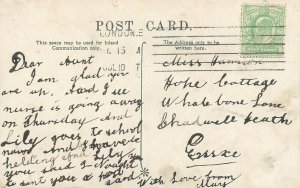 POST CARD.
This space may be used for Inland Communication only.
The Address only to be written here.
LONDON.E
Dear Aunt
I am glad you
are up, and I see
nurse is going away
on Thursday and
Lily goes to school
now. And I have
holding Lily
you said I
to sent you a post
card
With Love from
Mary
Miss Harrison
Hope Cottage
Whalebone Lane
Chadwell Heath
Essex